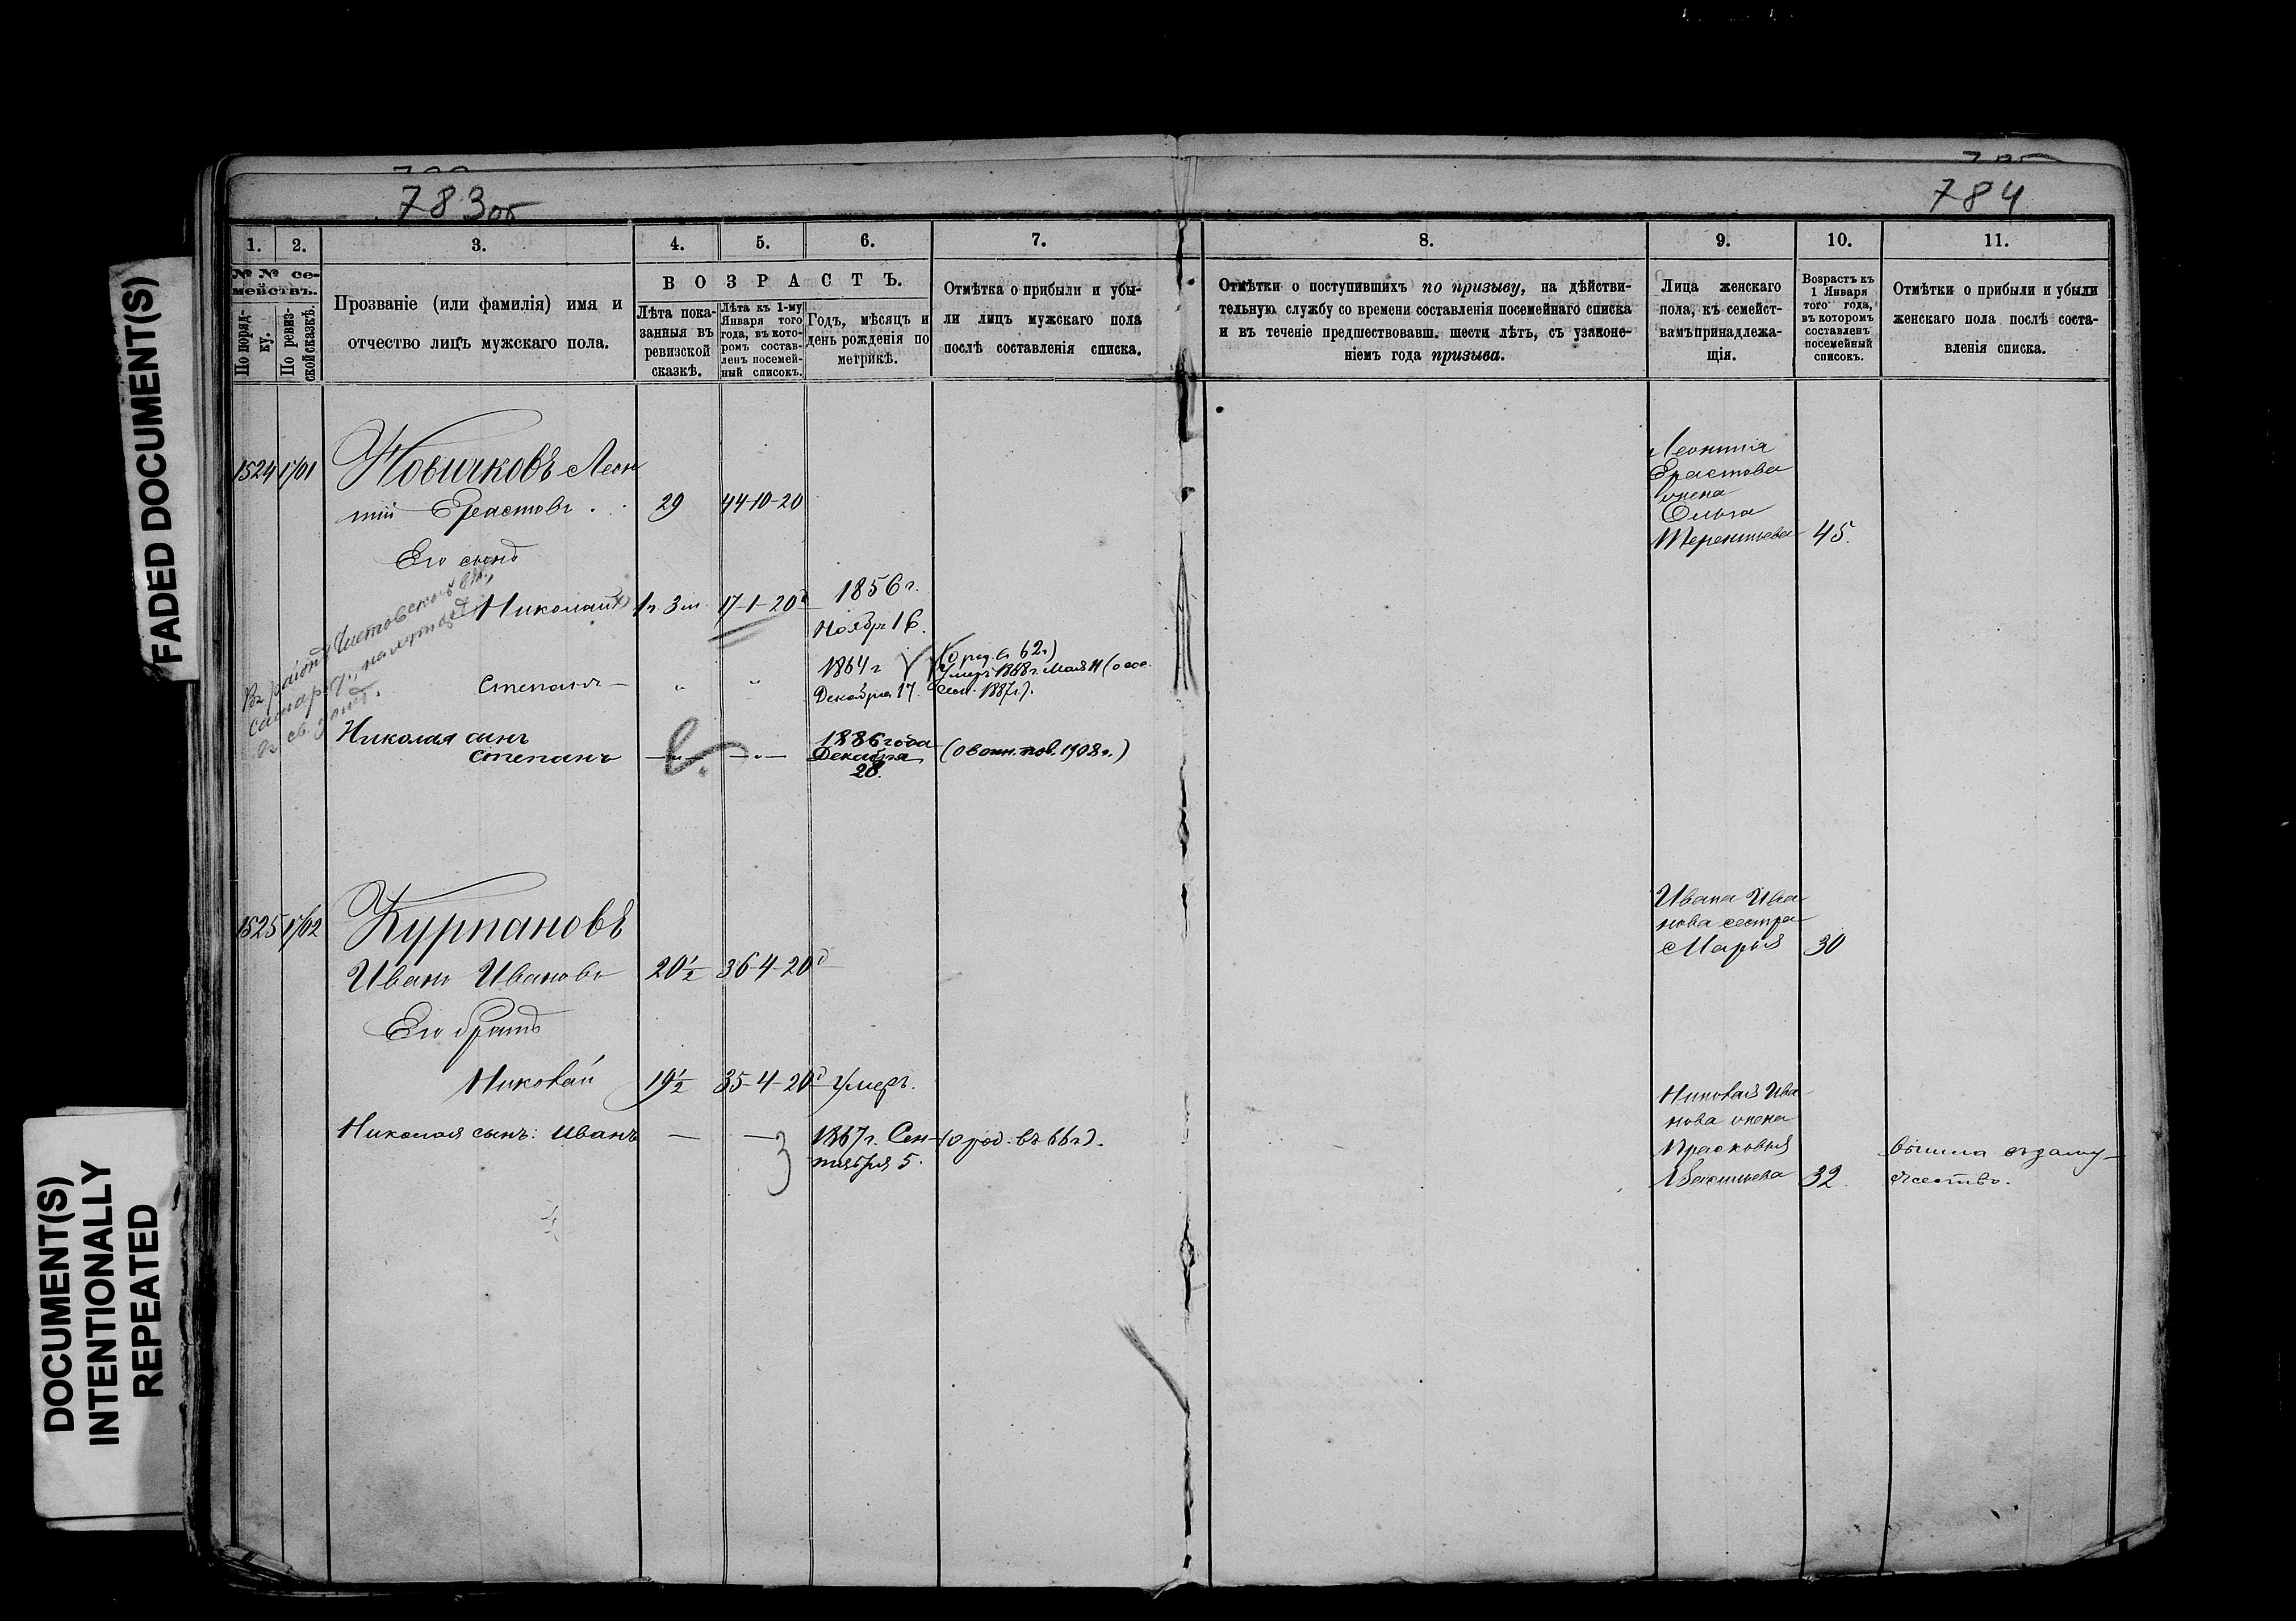 FADED DOCUMENT(S)
DOCUMENT(S)
INTENTIONALLY
REPEATED
783об
784
1. 2. 3. 4. 5. 6. 7. 8. 9. 10. 11.
№ № се-
мействъ.
По поряд-
ку.
По ревиз-
ской сказкѣ.
Прозваніе (или фамилія) имя и
отчество лицъ мужскаго пола.
ВОЗРАСТЪ.
Лѣта пока-
занныя въ
ревизской
сказкѣ.
Лѣта къ 1-му
Января того
года, въ кото-
ромъ состав-
ленъ посемей-
ный списокъ.
Годъ, мѣсяцъ и
день рожденія по
метрикѣ.
Отмѣтка о прибыли и убы-
ли лицъ мужскаго пола
послѣ составленія списка.
Отмѣтки о поступившихъ по призыву, на дѣйстви-
тельную службу со времени составленія посемейнаго списка
и въ теченіе предшествовавш. шести лѣтъ, съ узаконе-
ніемъ года призыва.
Лица женскаго
пола, къ семейст-
вамъ принадлежа-
щія.
Возрастъ къ
1 Января
того года,
въ которомъ
составленъ
посемейный
списокъ.
Отмѣтки о прибыли и убыли
женскаго пола послѣ соста-
вленія списка.
1524 1701 Новичковъ Леон
тій Ерастовъ . . 29 44-10-20
Его сынъ
Николай 1 г. 3 м. 17-1-20д 1856 г.
Ноябр 16.
Степанъ — " " 1864 г
Декабря 17.
(о род. въ 62 г)
Умеръ 1868 г. Мая 11
1887 г).
Николая сынъ
Степанъ — " — — " — 1886 года
Декабря
28.
(о воин. пов. 1908 г.)
Леонтія
Ерастова
жена
Ольга
Терентьева 45.
1525 1702 Курпановъ
Иванъ Ивановъ 20½ 36-4-20д
Его братъ
Николай 19½ 35-4-20д Умеръ.
Николая сынъ: Иванъ — — 1867 г. Сен-
тября 5.
(о род. въ 66 г).
Ивана Ива
нова сестра
Марья 30
Николая Ива
нова жена
Прасковья
32
вышла въ заму-
жество.